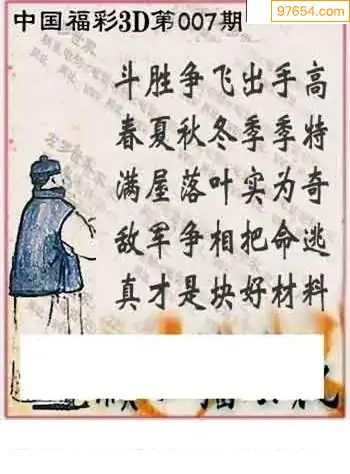 中国福彩3D第007期
97654.com
斗胜争飞出手高
春夏秋冬季季特
满屋落叶实为奇
敌军争相把命逃
真才是块好材料